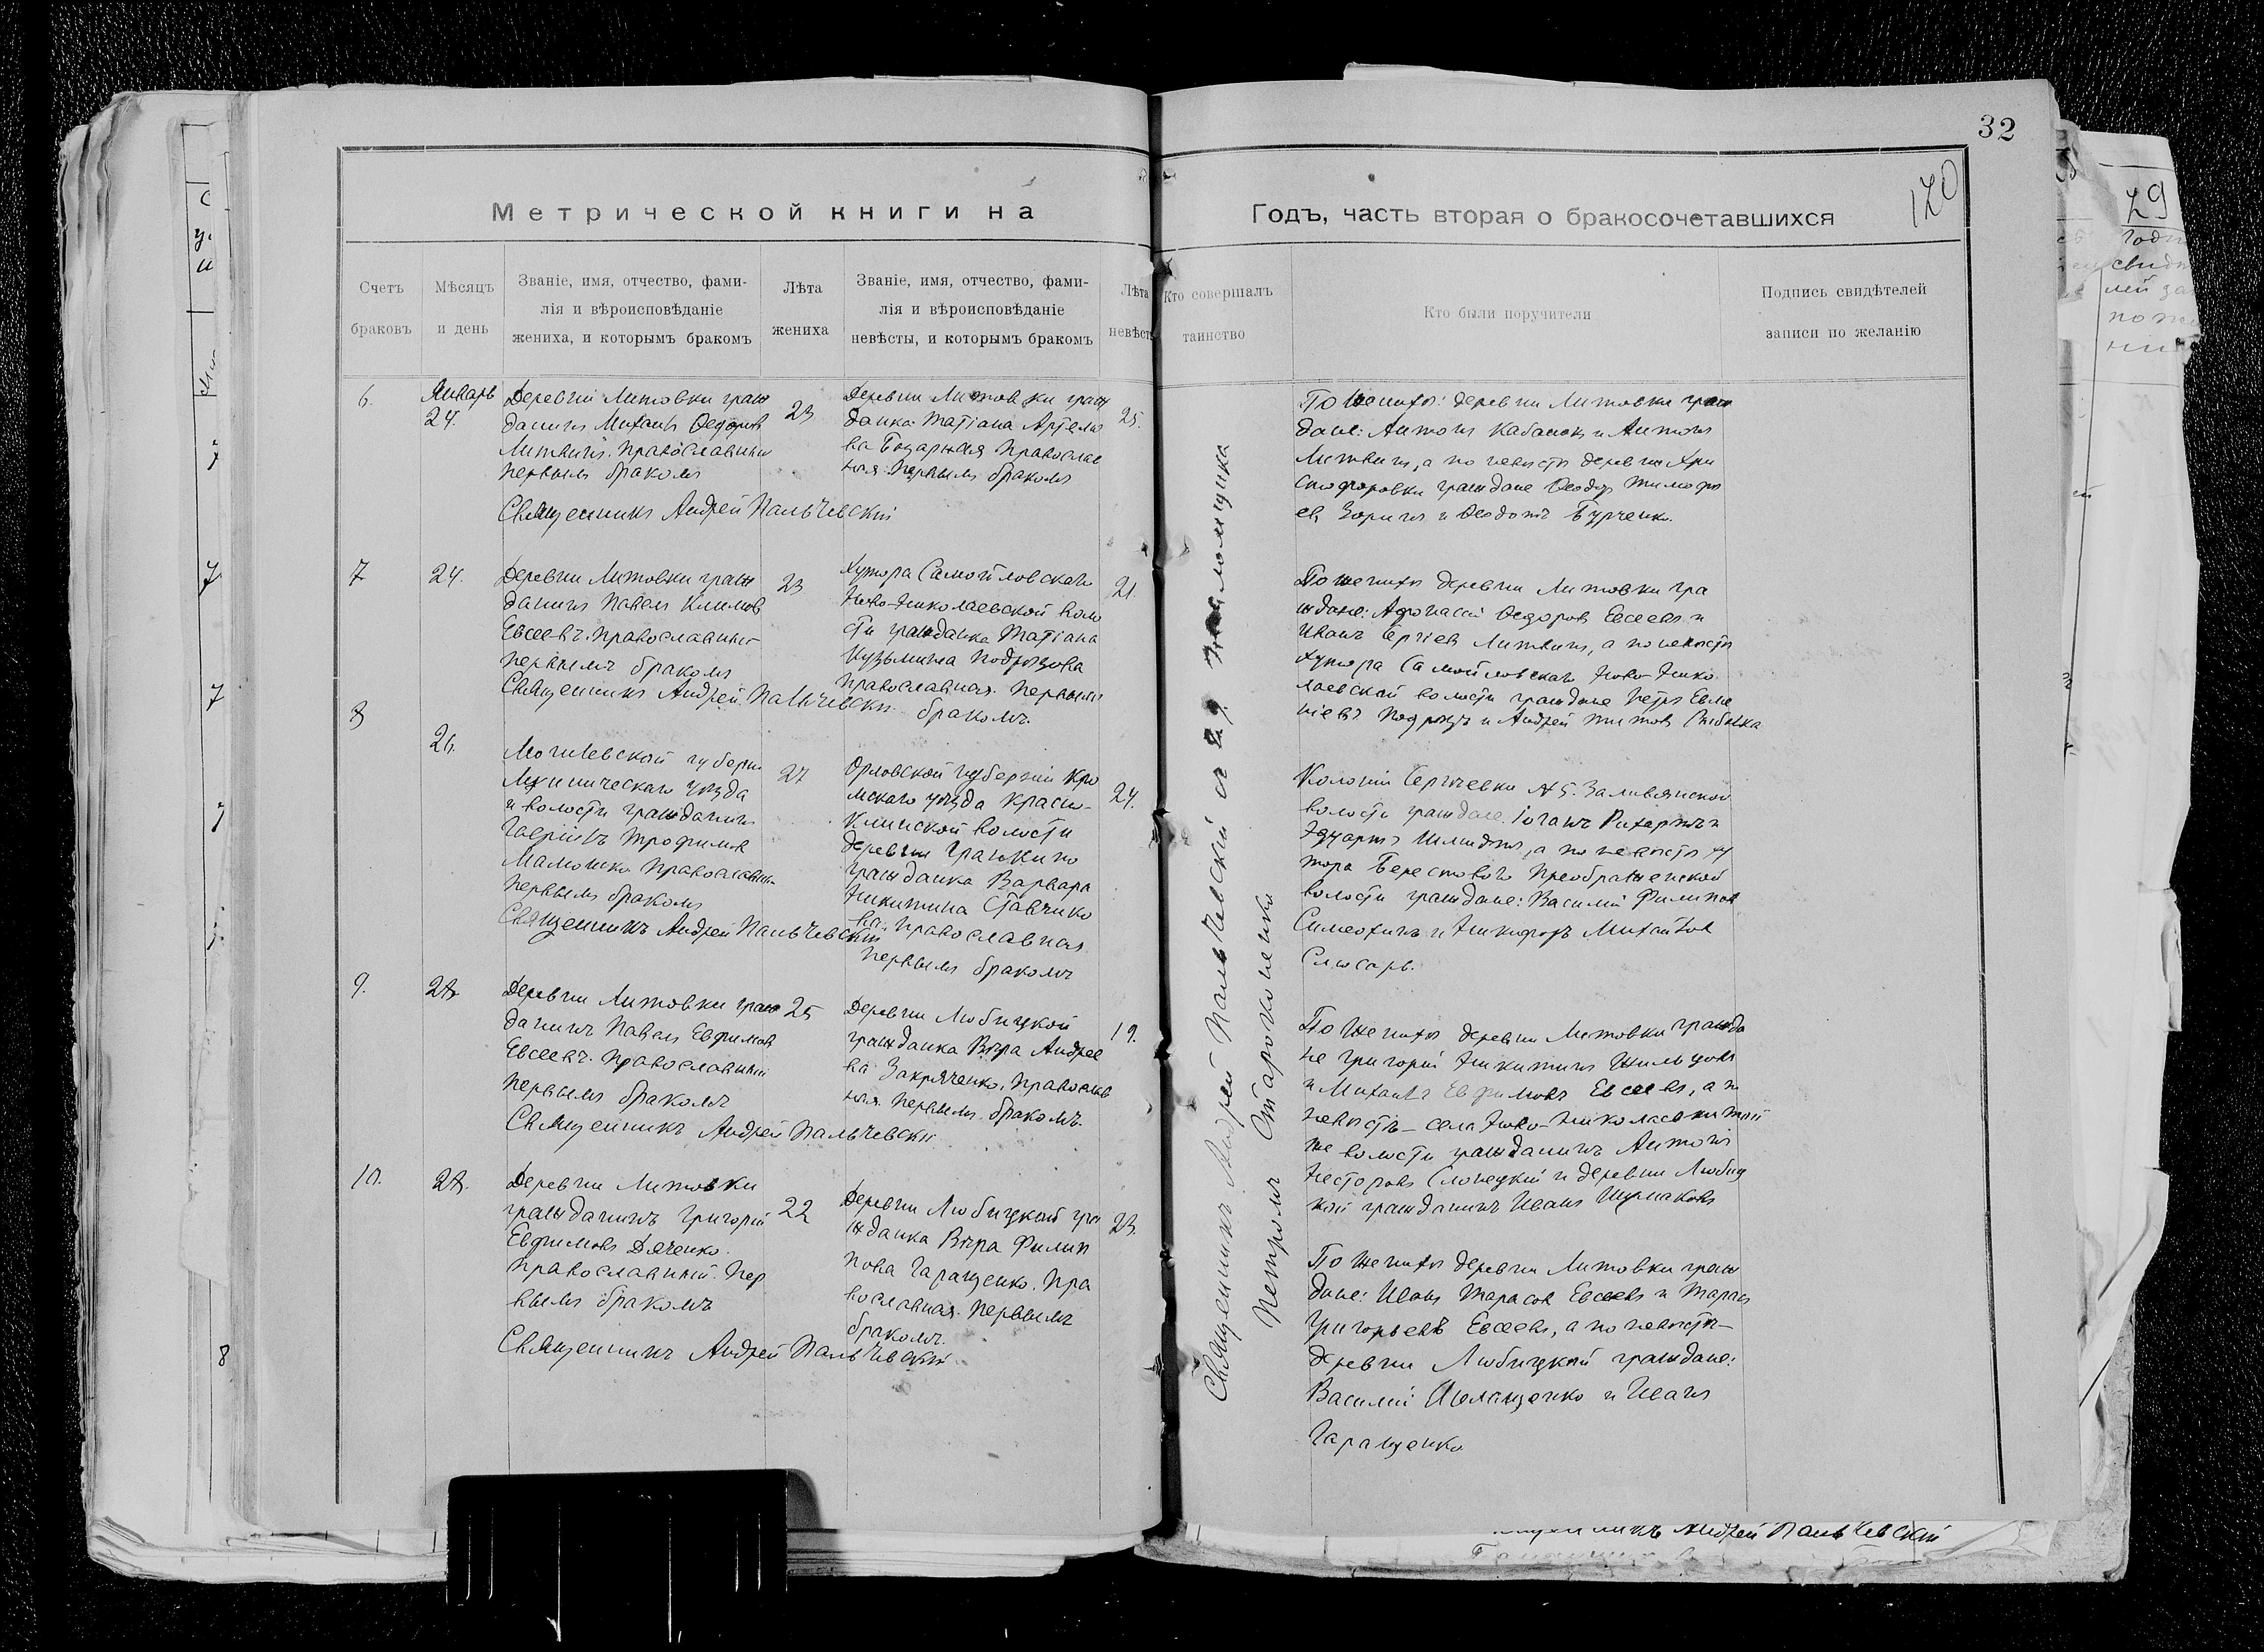 32
120
Метрической книги на
Годъ, часть вторая о бракосочетавшихся
Счетъ
браковъ
Мѣсяцъ
и день
Званіе, имя, отчество, фами-
лія и вѣроисповѣданіе
жениха, и которымъ бракомъ
Лѣта
жениха
Званіе, имя, отчество, фами-
лія и вѣроисповѣданіе
невѣсты, и которымъ бракомъ
Лѣта
невѣсты
Кто совершалъ
таинство
Кто были поручители
Подпись свидѣтелей
записи по желанію
6.
Январь
24.
Деревни Литовки граж
данинъ Михаилъ Ѳедоров
Литвинъ. Православный
первымъ бракомъ
Священникъ Андрей Пальчевскій
23
Деревни Литовки граж
данка Татіана Артемо
ва Бондарная Православ
ная первымъ бракомъ
25.
По женихѣ: деревни Литовки граж
дане: Антонъ Кабанокъ и Антонъ
Литвинъ, а по невѣстѣ деревни Хри
стофоровки граждане Ѳеодоръ Тимофе
ев Зоринъ и Ѳеодотъ Бурченко.
7
24.
Деревни Литовки граж
данинъ Павелъ Климов
Евсеевъ. Православный
первымъ бракомъ
Священникъ Андрей Пальчевскій
23
Хутора Самойловскаго
Ново-Николаевской воло
сти гражданка Татіана
Кузьмина Подрѣзова
Православная. Первымъ
бракомъ.
21.
По женихѣ деревни Литовки гра
ждане: Афонасій Ѳедоров Евсеевъ и
Иванъ Сергіев Литвинъ, а по невѣстѣ
хутора Самойловскаго Ново-Нико
лаевской волости граждане Петръ Евме
ніевъ Подрѣзъ и Андрей Титов
8
26.
Могилевской губерни
уѣзда
и волости гражданинъ
Гавріилъ Трофимов
Мамошко Православный
первымъ бракомъ
Священникъ Андрей Пальчевскій
27
Орловской губерніи Кро
мскаго уѣзда Красно-
Клинской волости
деревни
гражданка Варвара
Никитина Ставчико
ва. Православная
первымъ бракомъ
24.
Колоніи Сергѣевки №5. Заливянской
волости граждане. Іоганъ Рихартъ и
Эдуартъ Шмидтъ, а по невѣстѣ ху
тора Берестоваго Преображенской
волости граждане: Василій Филипов
Симеохинъ и Никифоръ Михайлов
Слюсарь.
9.
28
Деревни Литовки граж
данинъ Павелъ Евфимов
Евсеевъ. Православный
первымъ бракомъ
Священникъ Андрей Пальчевскій
25
Деревни Любицкой
гражданка Вѣра Андрее
ва Закряченко. Православ
ная. Первымъ бракомъ.
19.
По женихѣ деревни Литовки гражда
не Григорій Никитинъ Жильцовъ
и Михаилъ Евфимовъ Евсеевъ, а по
невѣстѣ - села Ново-Николаевки той
же волости гражданинъ Антонъ
Несторовъ Слонецкій и деревни Любиц
кой гражданинъ Иванъ Шумаковъ
10.
28.
Деревни Литовки
гражданинъ Григорій
Евфимовъ Дяченко.
Православный. Пер
вымъ бракомъ
Священникъ Андрей Пальчевскій
22
Деревни Любицкой гра
жданка Вѣра Филип
пова Гаращенко. Пра
вославная. Первымъ
бракомъ.
23.
По женихѣ деревни Литовки граж
дане: Иванъ Тарасов Евсеевъ и Тарасъ
Григорьевъ Евсеевъ, а по невѣстѣ -
деревни Любицкой граждане:
Василій Иванщенко и Иванъ
Гаращенко
Священникъ Андрей Пальчевскій съ и. д. псаломщика
Петромъ Староконенко
Андрей Пальчевскій